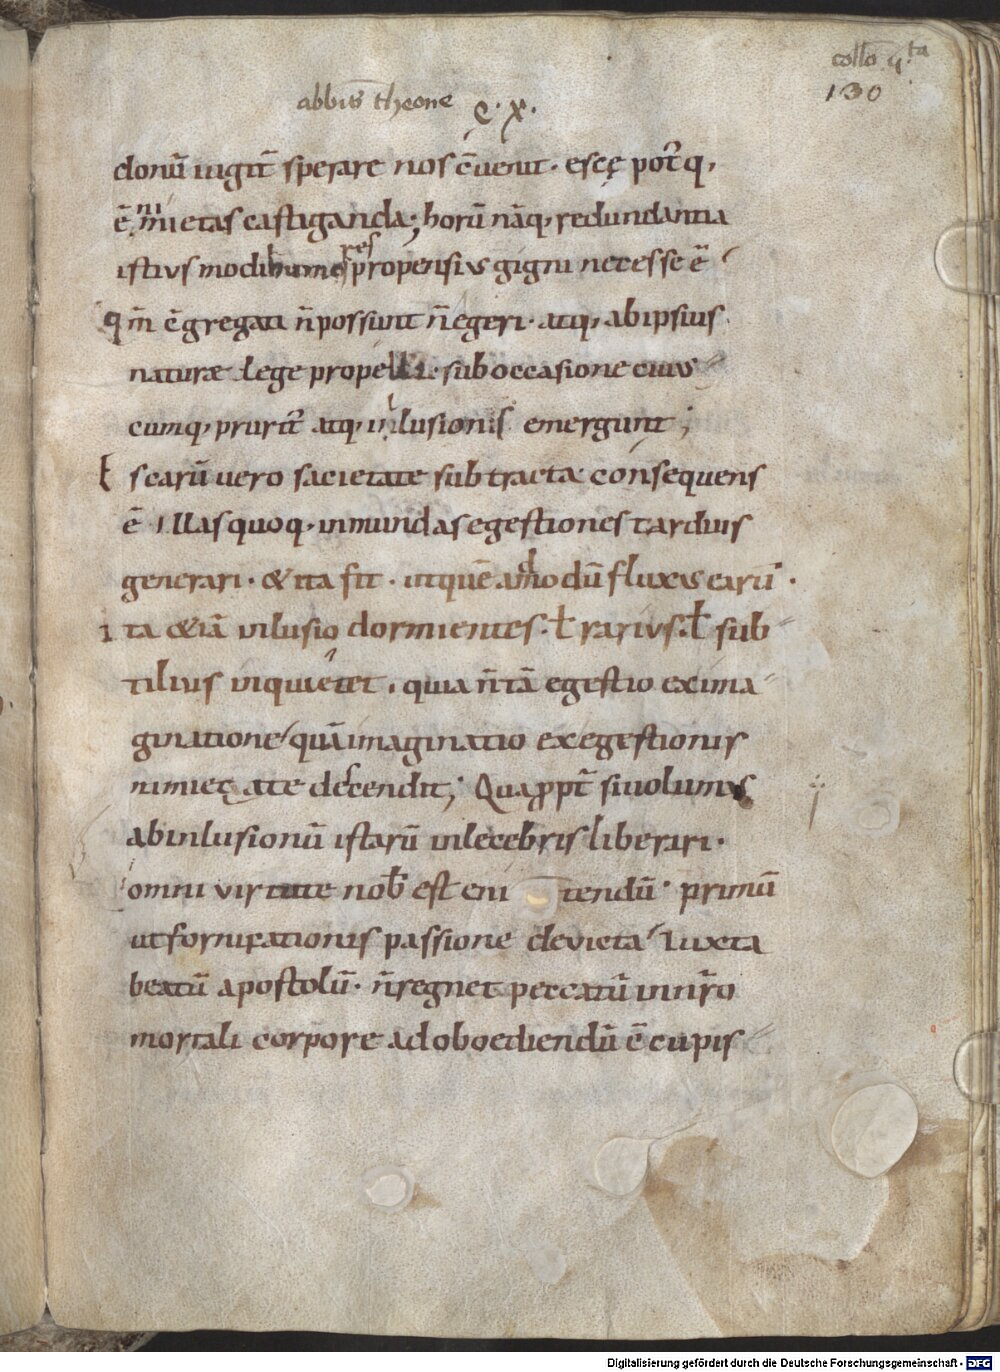 collo q.ta
130
abbis theone c. x.
donū iugit̄ sperare nos c̄uenit. escę pot̄ q,
ē nimietas castiganda; horū nāq, redundantia
istius modi humores propensius gigni necesse ē
qm̄ c̄gregati n̄ possunt n̄ egeri. atq, ab ipsius
naturæ lege propelli. sub occasione cuius
cumq, prurit᷒ atq, inlusionis emergunt;
Escarū vero sacietate subtracta consequens
ē illas quoq, inmundas egestiones tardius
generari. & ita fit. ut quēadmodū fluxus earū.
ita &iā inlusio dormientes. ł rarius. ł sub
tilius inquietet. quia n̄ tā egestio ex ima
ginatione quā imaginatio ex egestionis
nimietate descendit; Quapropt̄ si uolumus
ab inlusionū istarū inlecebris liberari.
omni virtute nob̄ est eni tendū. primū
ut fornicationis passione devicta iuxta
beatū apostolū. n̄ regnet peccatū in nr̄o
mortali corpore ad oboediendū c̄cupis
Digitalisierung gefördert durch die Deutsche Forschungsgemeinschaft - DFG